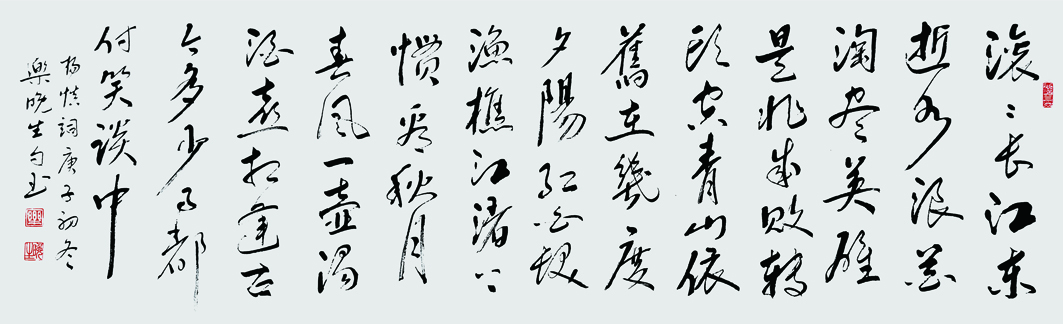 滚滚长江東
逝水浪花
淘尽英雄
是非成败转
头空青山依
舊在幾度
夕陽红白髮
渔樵江渚上
惯看秋月
春风一壶濁
酒喜相逢古
今多少事都
付笑谈中
杨慎詞庚子初冬
樂晚生